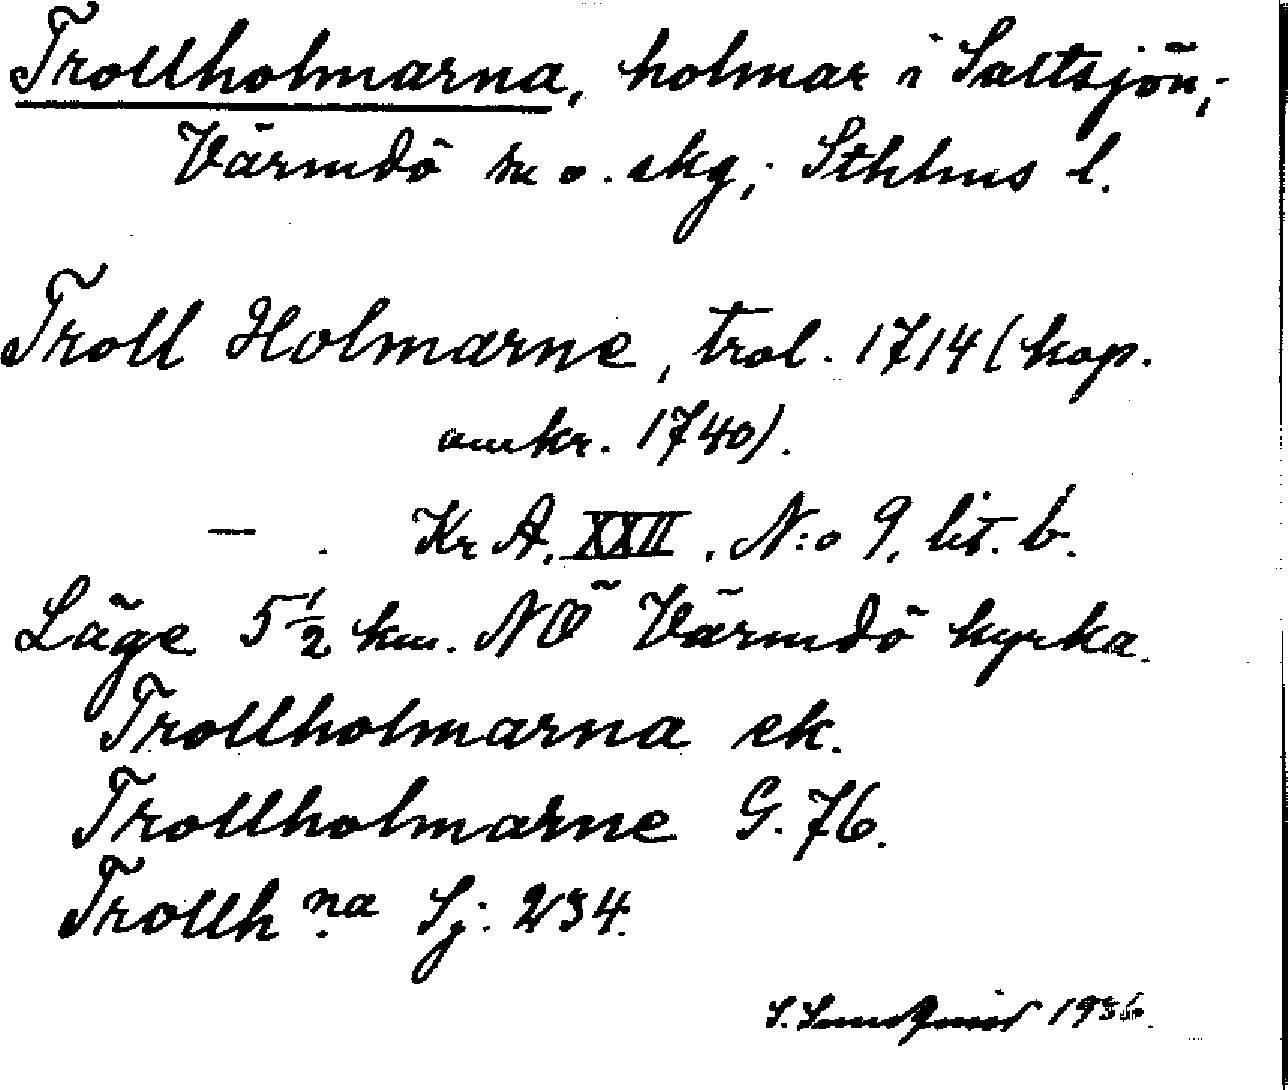 Trollholmarna, holmar i Saltsjön;
Värmdö sn o. skg; Sthlms l.
Troll Holmarne, trol. 1714 (kop.
omkr. 1740).
— . Kr A. XXII. N:o 9. lit. b.
Läge 5 1/2 km. NO Värmdö kyrka.
Trollholmarna ek.
Trollholmarne G. 76.
Trollh na Sj: 234.
S. Sundquist 1936.